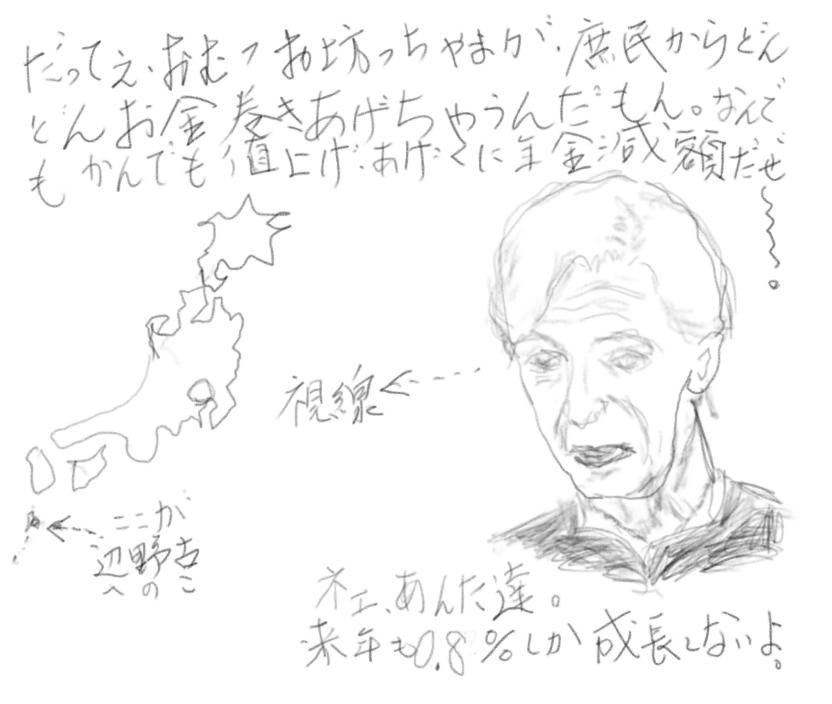 だってえ、おむつお坊っちゃまが、庶民からどん
どんお金巻きあげちゃうんだもん。なんで
もかんでも値上げ、あげくに年金減額だぜ
〜〜。
視線
ここが
辺野古
へのこ
ネエ、あんた達。
来年も0.8%しか成長しないよ。